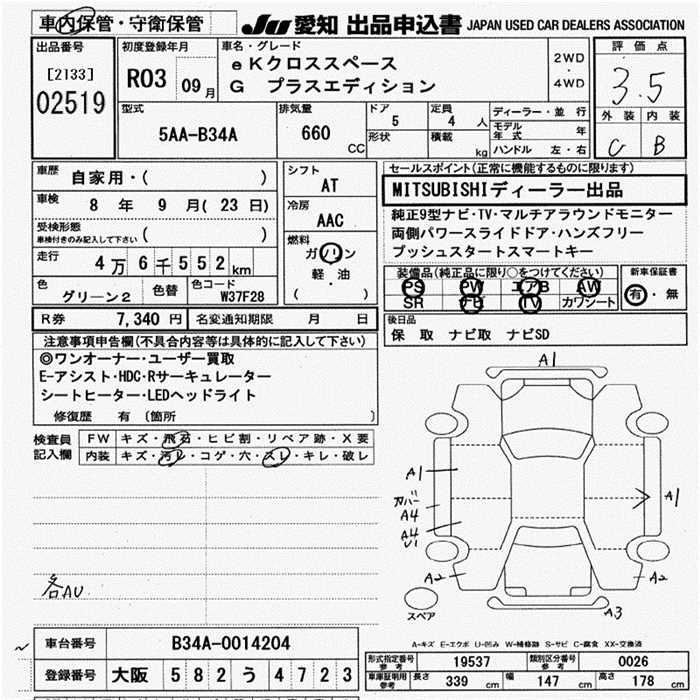 車内保管・守衛保管
JU 愛知 出品申込書 JAPAN USED CAR DEALERS ASSOCIATION
出品番号
[2133]
02519
初度登録年月
R03 09月
車名・グレード
eKクロススペース
G プラスエディション
2WD
・
4WD
評価点
3.5
外装 内装
C B
型式
5AA-B34A
排気量
660 CC
ドア 5
形状
定員 4 人
積載 kg
ディーラー・並行
モデル年式 年
ハンドル 左・右
車歴 自家用・( )
車検 8 年 9 月( 23 日)
受検形態
車検付きのみ記入して下さい ( )
走行 4万 6千 5 5 2 km
色 グリーン2 色替 色コード W37F28
シフト
AT
冷房
AAC
燃料
ガソリン
軽・油
( )
セールスポイント(正常に機能するものに限ります)
MITSUBISHIディーラー出品
純正9型ナビ・TV・マルチアラウンドモニター
両側パワースライドドア・ハンズフリー
プッシュスタートスマートキー
装備品(純正品に限り○をつけてください)
PS PW エアB AW
SR ナビ TV カワシート
新車保証書
有・無
R券 7,340 円 名変通知期限 月 日
後日品
保 取 ナビ取 ナビSD
注意事項申告欄(不具合内容等は具体的に記入して下さい)
◎ワンオーナー・ユーザー買取
E-アシスト・HDC・Rサーキュレーター
シートヒーター・LEDヘッドライト
修復歴 有 〔箇所 〕
検査員記入欄
FW キズ・飛石・ヒビ割・リペア跡・X要
内装 キズ・汚レ・コゲ・穴・スレ・キレ・破レ
各AU
A1
A1
カバー
A4
A4
U1
A1
A2
A2
A3
スペア
A-キズ E-エクボ U-凹み W-補修跡 S-サビ C-腐食 XX-交換済
車台番号 B34A-0014204
登録番号 大阪 5 8 2 う 4 7 2 3
形式指定番号 参考 19537 類別区分番号 参考 0026
車庫証明用 参考 長さ 339 cm 幅 147 cm 高さ 178 cm